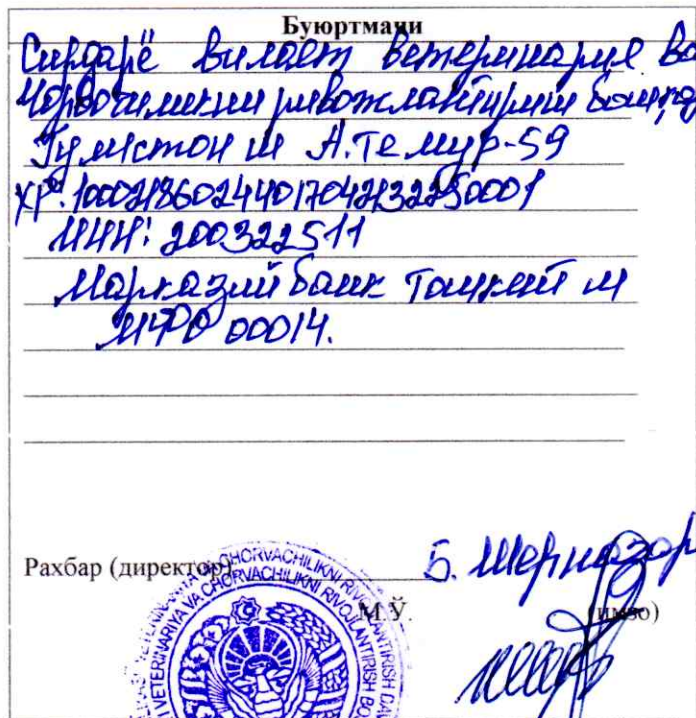 Буюртмачи
Сирдарё вилоят ветеринария ва
чорвачиликни ривожлантириш бошқ
Гулистон ш А.Темур-59
ХР: 100021860244017042132250001
ИНН: 200322511
Марказий банк Тошкент ш
МФО 00014.
Рахбар (директор) Б. Шерназар
М.Ў. (имзо)
VETERINARIYA VA CHORVACHILIKNI RIVOJLANTIRISH
VETERINARIYA VA CHORVACHILIKNI RIVOJLANTIRISH BOSH